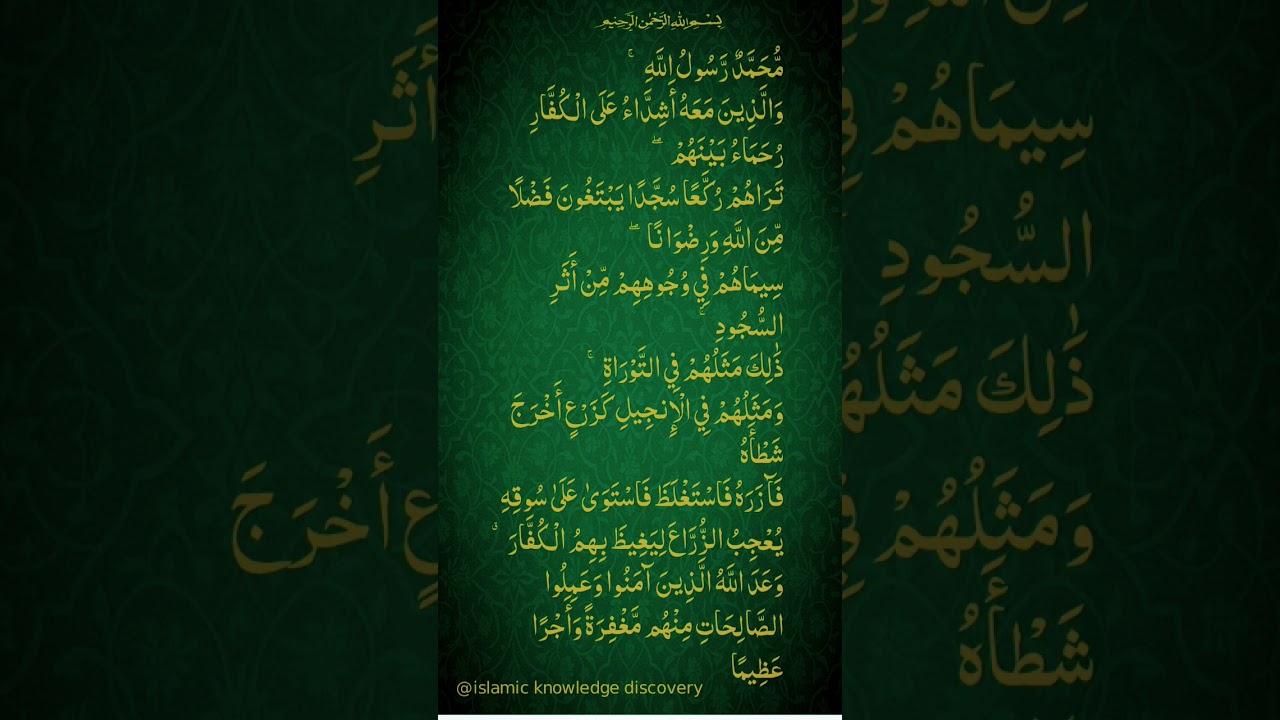 بِسْمِ اللَّهِ الرَّحْمَٰنِ الرَّحِيمِ
مُّحَمَّدٌ رَّسُولُ اللَّهِ ۚ
وَالَّذِينَ مَعَهُ أَشِدَّاءُ عَلَى الْكُفَّارِ
رُحَمَاءُ بَيْنَهُمْ ۖ
تَرَاهُمْ رُكَّعًا سُجَّدًا يَبْتَغُونَ فَضْلًا
مِّنَ اللَّهِ وَرِضْوَانًا ۖ
سِيمَاهُمْ فِي وُجُوهِهِمْ مِّنْ أَثَرِ
السُّجُودِ ۚ
ذَٰلِكَ مَثَلُهُمْ فِي التَّوْرَاةِ ۚ
وَمَثَلُهُمْ فِي الْإِنجِيلِ كَزَرْعٍ أَخْرَجَ
شَطْأَهُ
فَآزَرَهُ فَاسْتَغْلَظَ فَاسْتَوَىٰ عَلَىٰ سُوقِهِ
يُعْجِبُ الزُّرَّاعَ لِيَغِيظَ بِهِمُ الْكُفَّارَ ۗ
وَعَدَ اللَّهُ الَّذِينَ آمَنُوا وَعَمِلُوا
الصَّالِحَاتِ مِنْهُم مَّغْفِرَةً وَأَجْرًا
عَظِيمًا
@islamic knowledge discovery